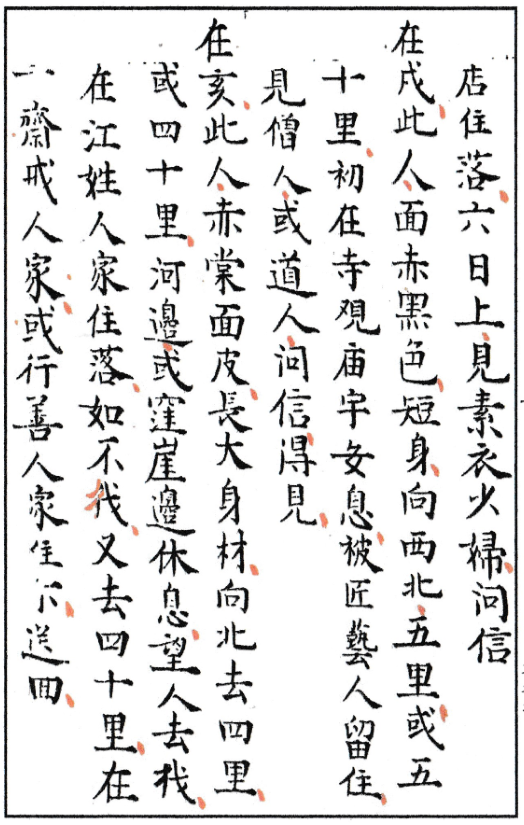 店住落六日上見素衣少婦问信
在戍此人面赤黑色短身向西北五里或五
十里初在寺观庙宇安息被匠藝人留住
見僧人或道人问信得見
在亥此人赤棠面皮長大身材向北去四里
或四十里河邊或窪崖邊休息望人去找
在江姓人家住落如不找又去四十里在
一齋戒人家或行善人家住下送回